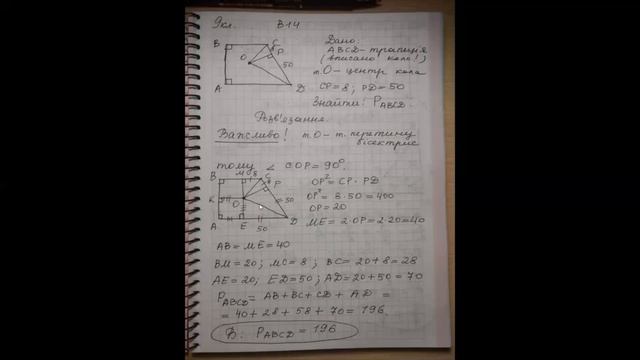 9кл. В-14
B C P O 50 A D
Дано:
ABCD - трапеція
(вписано коло!)
т.О - центр кола
CP = 8; PD = 50
Знайти: P ABCD
Розв'язання.
Важливо! т.О - т. перетину
бісектрис
тому ∠ COP = 90°.
B M 8 C P K O 50 A E 50 D
OP² = CP · PD
OP² = 8 · 50 = 400
OP = 20
ME = 2·OP = 2·20 = 40
AB = ME = 40
BM = 20; MC = 8; BC = 20 + 8 = 28
AE = 20; ED = 50; AD = 20 + 50 = 70
P ABCD = AB + BC + CD + AD =
= 40 + 28 + 58 + 70 = 196.
В: P ABCD = 196